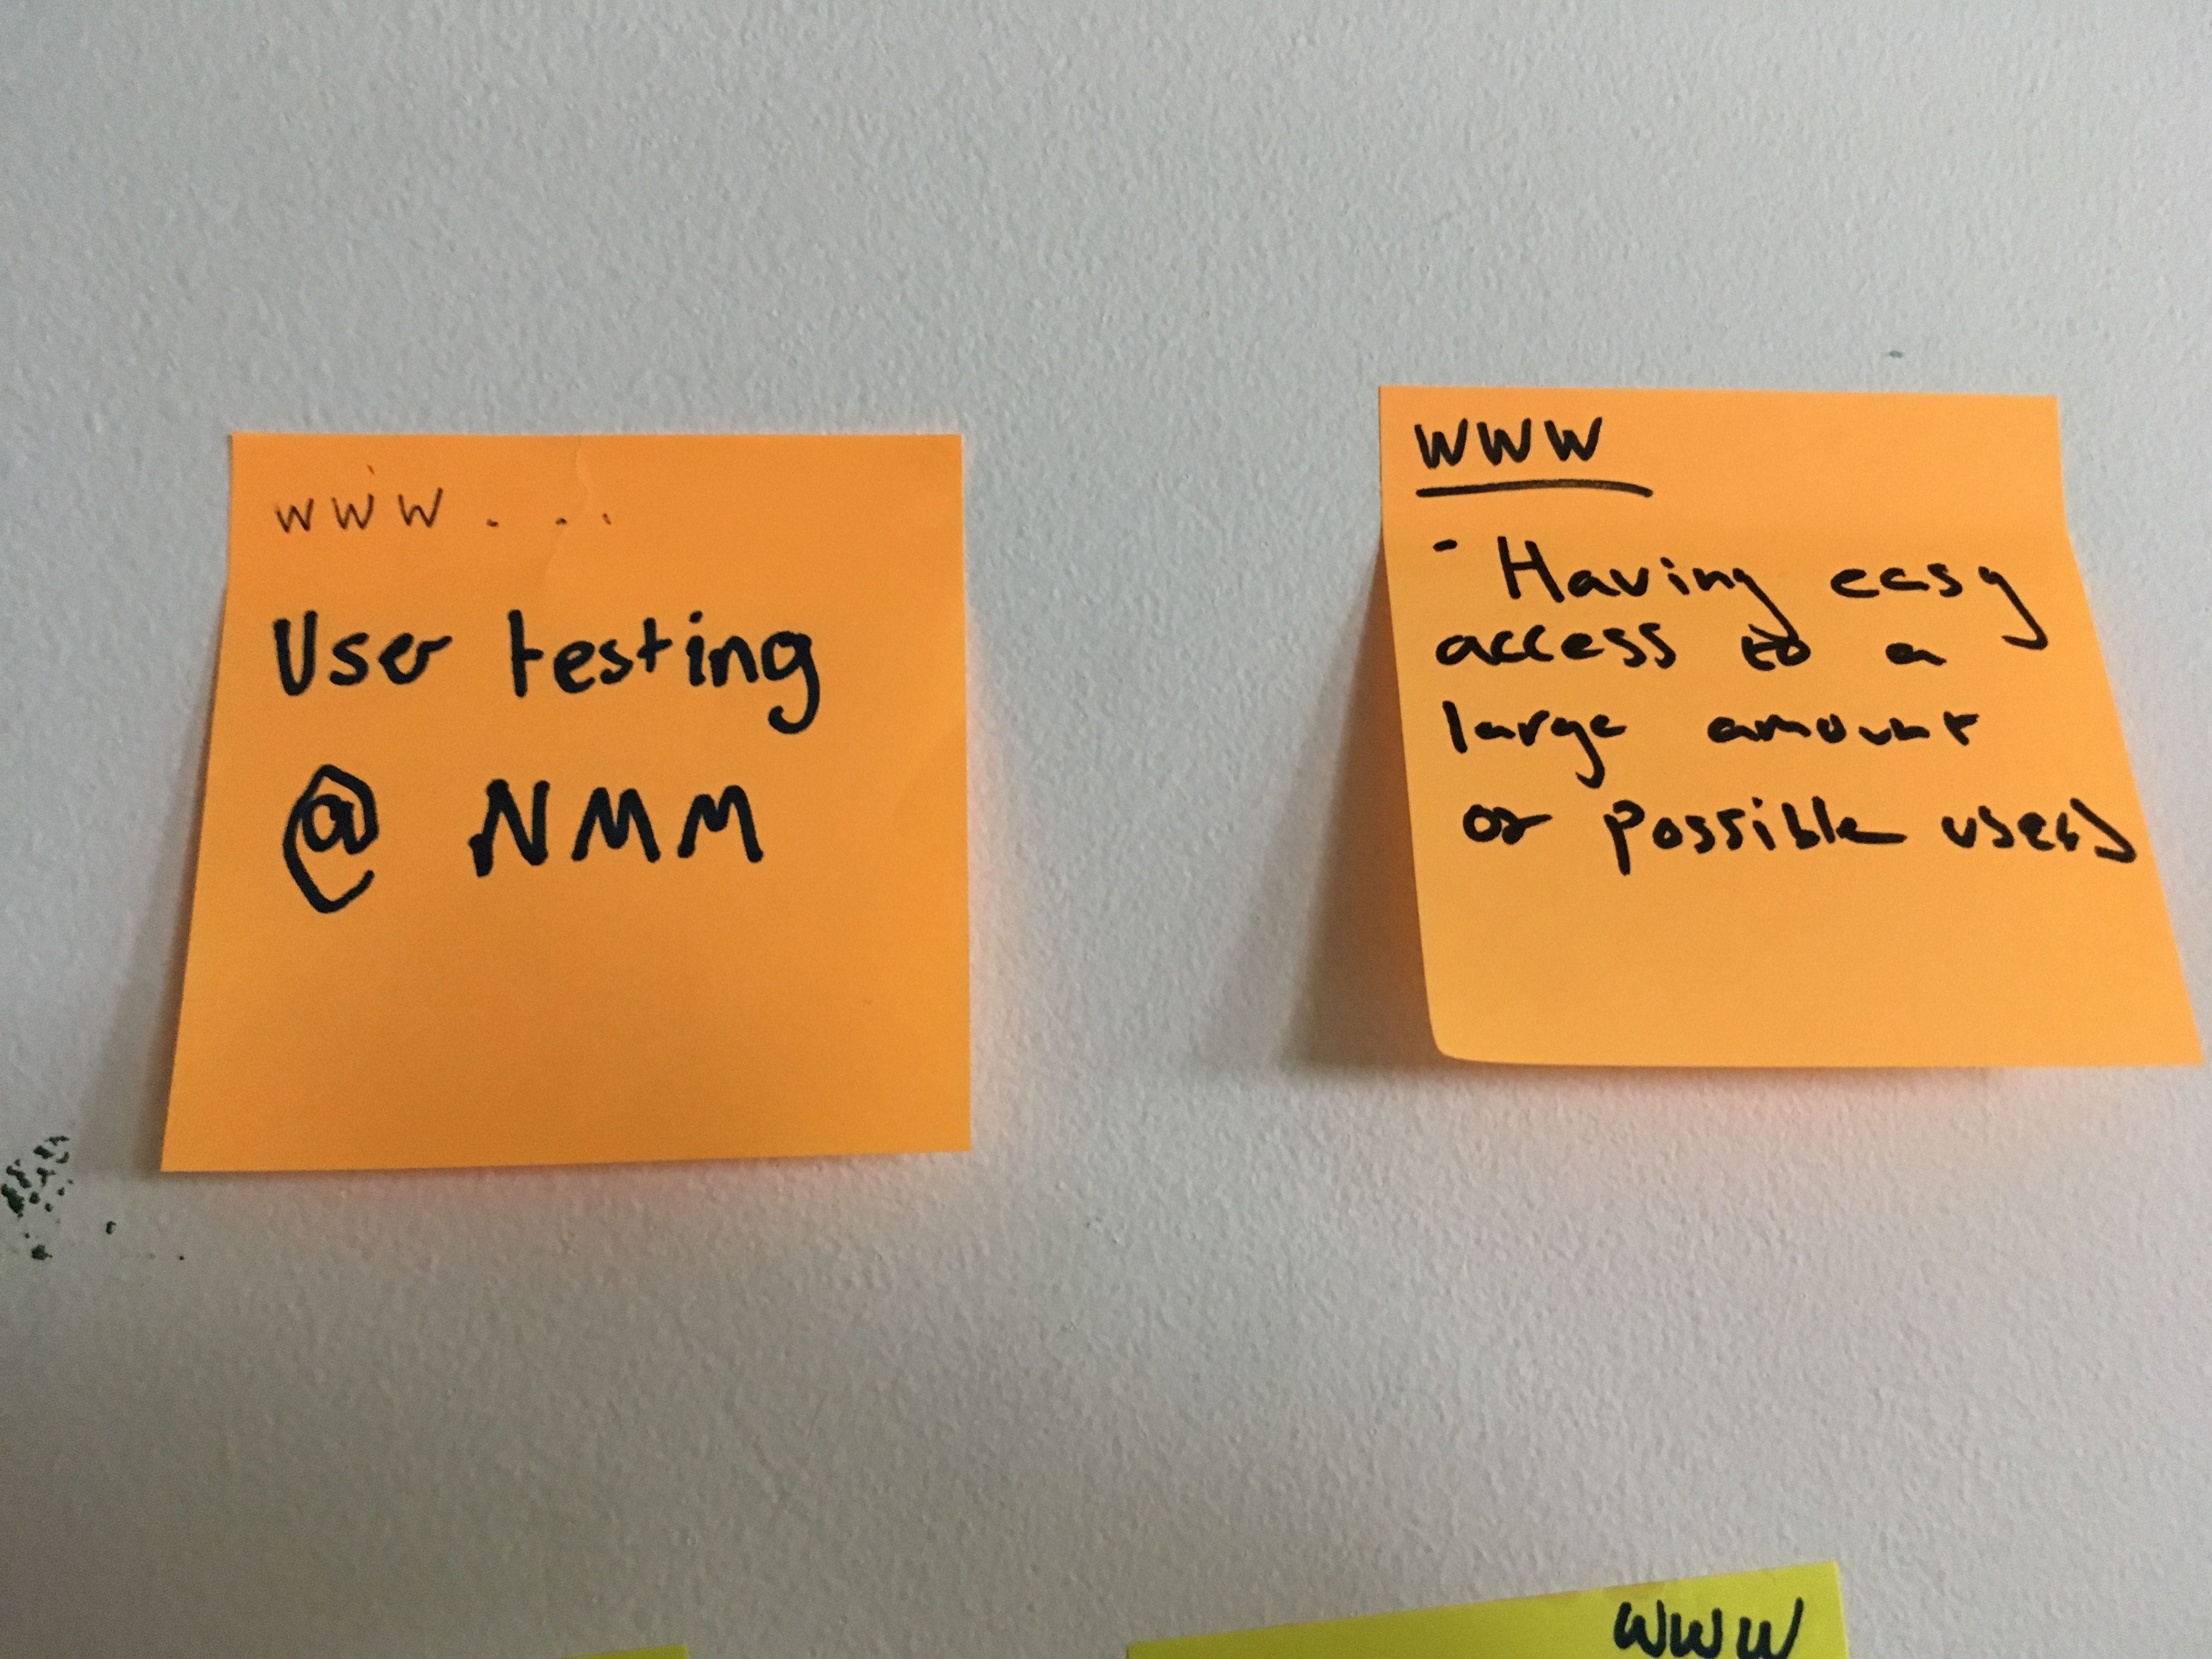 www...
User testing
@ NMM
WWW
- Having easy
access to a
large amount
or possible users
WWW